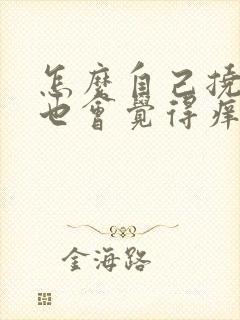 怎麼自己撓
也會覺得癢
金海路